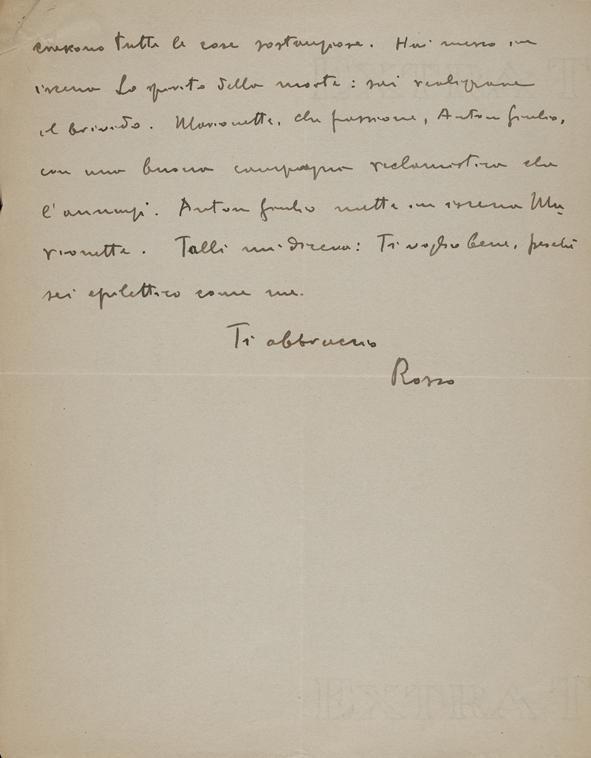 tutte le cose Hai messo in
iscena Lo spirito della morte : sai realizzare
il brivido. Marionette, che passione, Anton Giulio,
con una buona campagna reclamistica che
l'annunzi. Anton Giulio metta in iscena Ma
rionette. Talli mi diceva: Ti voglio bene, perchè
sei epilettico come me.
Ti abbraccio
Rosso